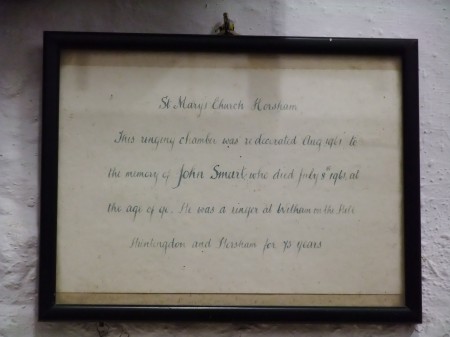 St Marys Church Horsham
This ringing chamber was redecorated Aug 1961 to
the memory of John Smart who died July 8th 1961, at
the age of 90. He was a ringer at Witham on the Hill
Huntingdon and Horsham for 73 years